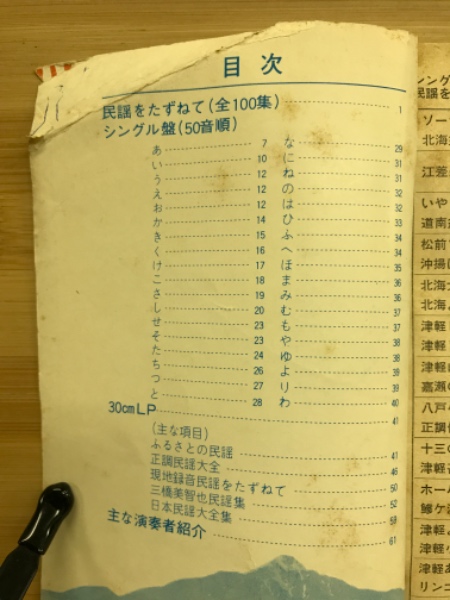 目次
民謡をたずねて(全100集) 1
シングル盤(50音順)
あ 7
い 10
う 12
え 12
お 12
か 14
き 15
く 16
け 17
こ 18
さ 19
し 20
せ 23
そ 23
た 24
ち 26
つ 27
と 28
な 29
に 31
ね 31
の 32
は 32
ひ 33
ふ 34
へ 34
ほ 35
ま 36
み 36
む 37
も 37
や 38
ゆ 38
よ 39
り 39
わ 40
30cmLP 41
(主な項目)
ふるさとの民謡 41
正調民謡大全 46
現地録音民謡をたずねて 50
三橋美智也民謡集 52
日本民謡大全集 59
主な演奏者紹介 61
民謡を
ソー
北海
江差
いや
道南
松前
沖揚
北海
北海
津軽
津軽
津軽
嘉瀬の
八戸
正調
十三の
津軽
ホール
鰺ケ
津軽
津軽
津軽
リンゴ